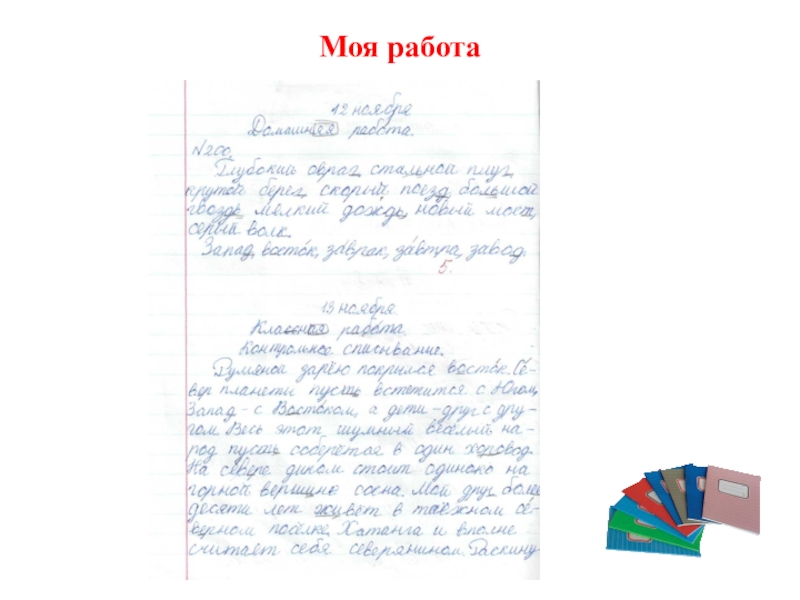 Моя работа
12 ноября
Домашняя работа.
№200.
Глубокий овраг, стальной плуг,
крутой берег, скорый поезд, большой
гвоздь, мелкий дождь, новый мост,
серый волк.
Запад, восток, завтрак, завтра, завод.
5.
13 ноября.
Классная работа.
Контрольное списывание.
Румяной зарёю покрылся восток. Се-
вер планеты пусть встетится с Югом,
Запад - с Востоком, а дети - друг с дру-
гом. Весь этот шумный весёлый на-
род пусть соберётся в один хоровод.
На севере диком стоит одиноко на
горной вершине сосна. Мой друг более
десяти лет живёт в таёжном се-
верном посёлке Хатанга и вполне
считает себя северянином. Раскину